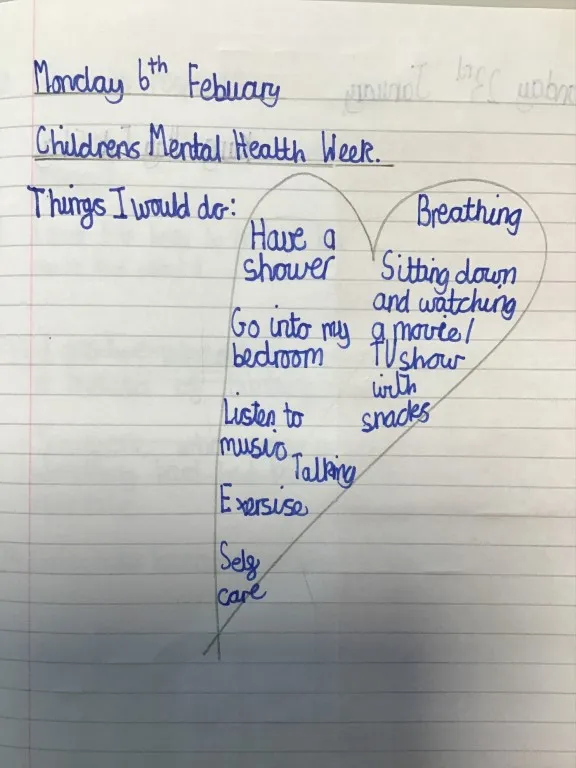 Monday 6th Febuary
Childrens Mental Health Week.
Things I would do:
Have a
shower
Go into my
bedroom
Listen to
music
Talking
Exersise
Self
care
Breathing
Sitting down
and watching
a movie/
TV show
with
snacks